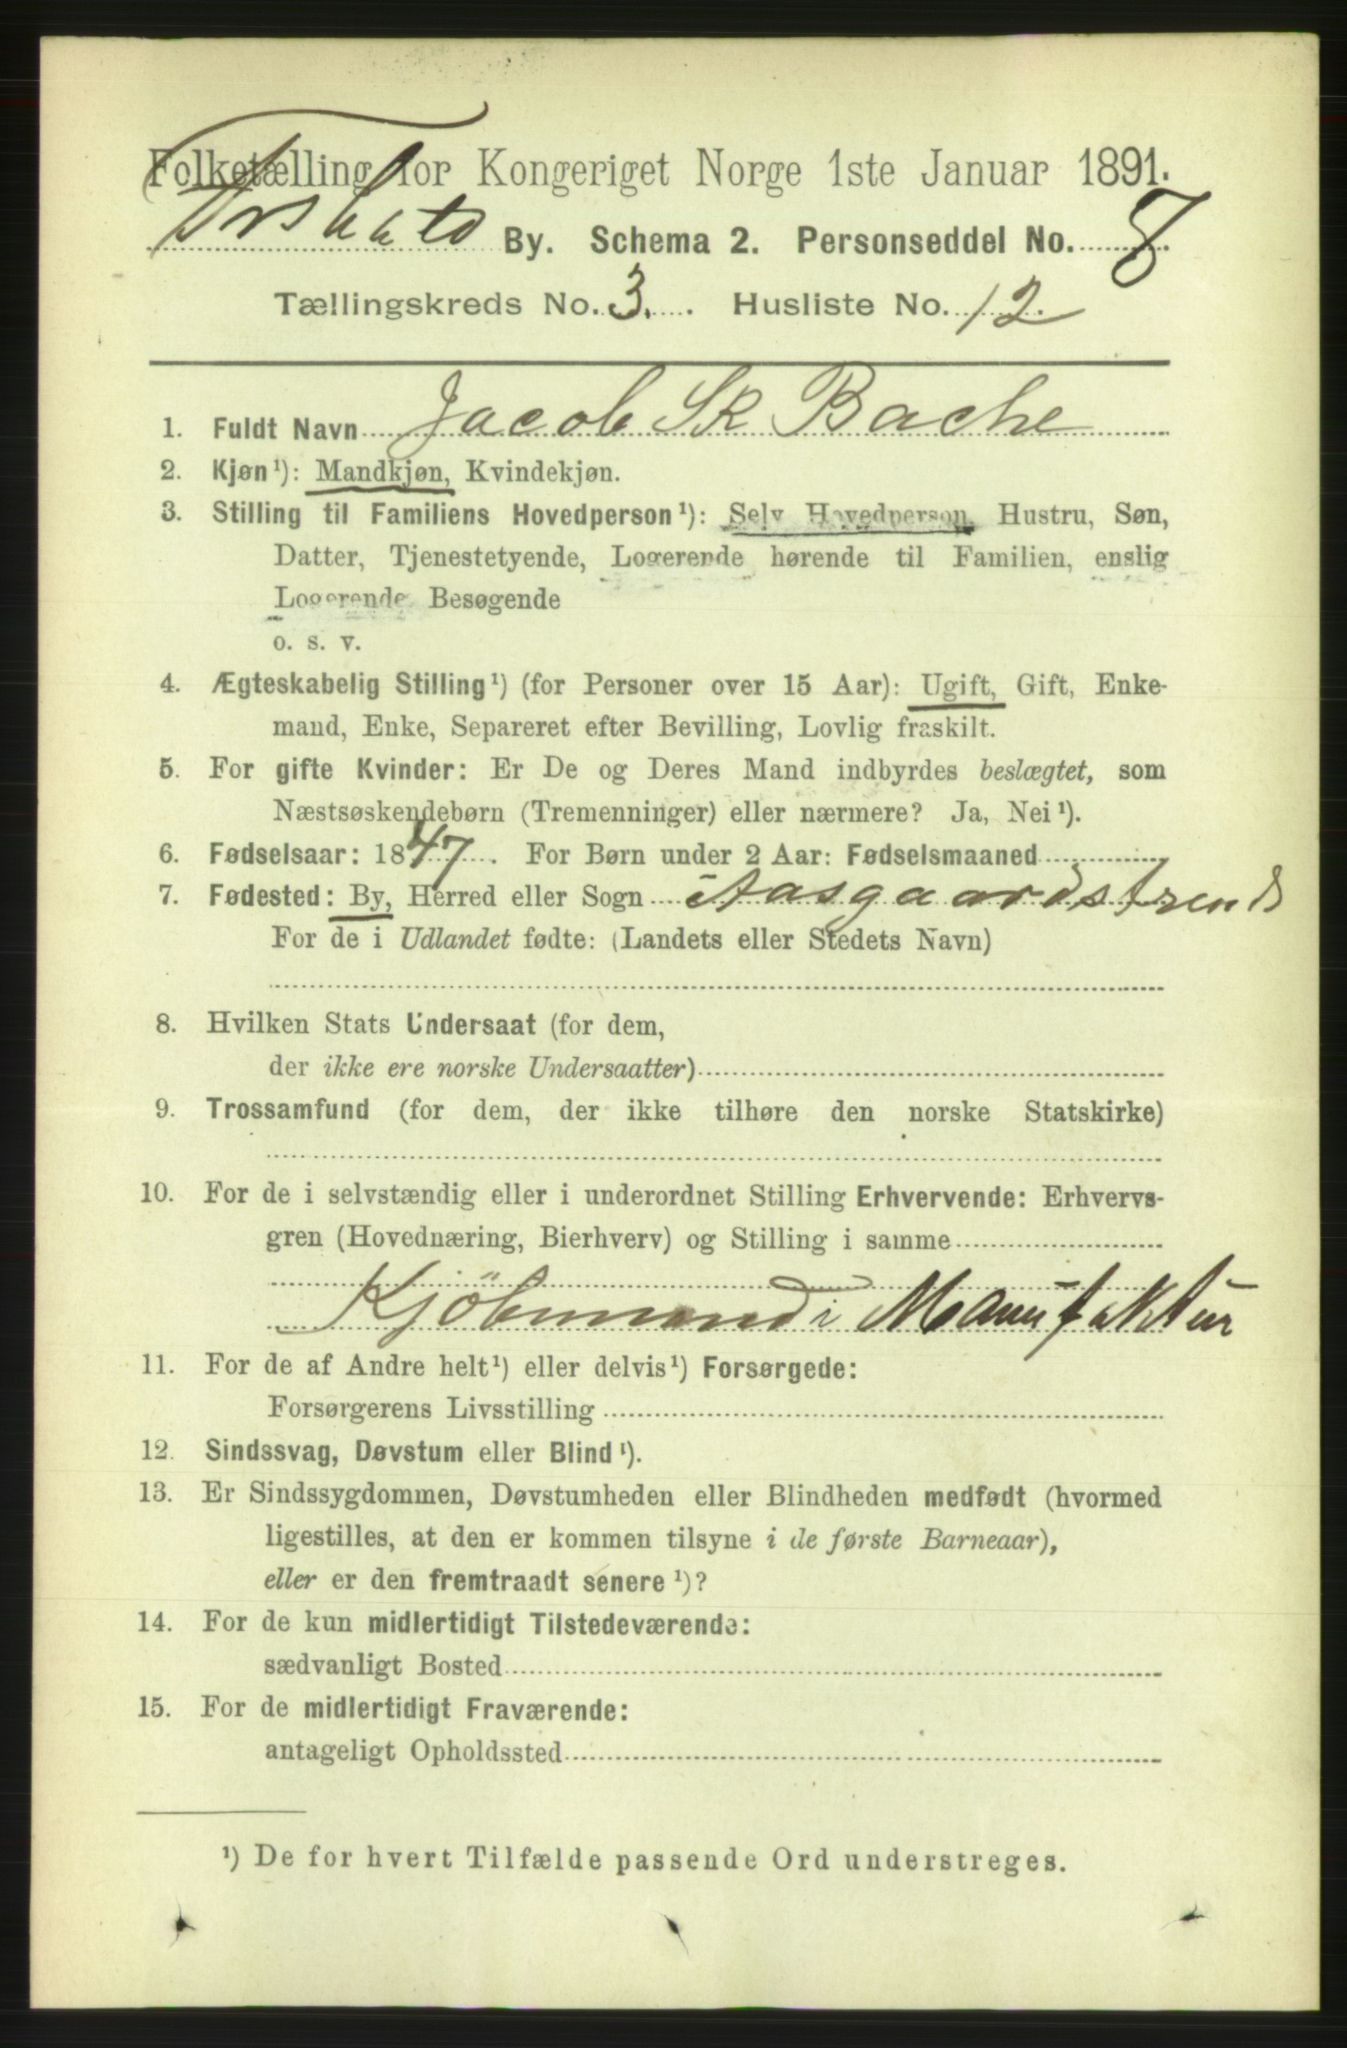 Folketælling for Kongeriget Norge 1ste Januar 1891.
By. Schema 2. Personseddel No. 8
Tællingskreds No. 3. Husliste No. 12.
1. Fuldt Navn Jacob Sk Bache
2. Kjøn¹): Mandkjøn, Kvindekjøn.
3. Stilling til Familiens Hovedperson¹): Selv Hovedperson, Hustru, Søn,
Datter, Tjenestetyende, Logerende hørende til Familien, enslig
Logerende, Besøgende
o. s. v.
4. Ægteskabelig Stilling¹) (for Personer over 15 Aar): Ugift, Gift, Enke-
mand, Enke, Separeret efter Bevilling, Lovlig fraskilt.
5. For gifte Kvinder: Er De og Deres Mand indbyrdes beslægtet, som
Næstsøskendebørn (Tremenninger) eller nærmere? Ja, Nei¹).
6. Fødselsaar: 1847. For Børn under 2 Aar: Fødselsmaaned
7. Fødested: By, Herred eller Sogn Aasgaardstrand
For de i Udlandet fødte: (Landets eller Stedets Navn)
8. Hvilken Stats Undersaat (for dem,
der ikke ere norske Undersaatter)
9. Trossamfund (for dem, der ikke tilhøre den norske Statskirke)
10. For de i selvstændig eller i underordnet Stilling Erhvervende: Erhvervs-
gren (Hovednæring, Bierhverv) og Stilling i samme
Kjöbmand i Manufaktur
11. For de af Andre helt¹) eller delvis¹) Forsørgede:
Forsørgerens Livsstilling
12. Sindssvag, Døvstum eller Blind¹).
13. Er Sindssygdommen, Døvstumheden eller Blindheden medfødt (hvormed
ligestilles, at den er kommen tilsyne i de første Barneaar),
eller er den fremtraadt senere¹)?
14. For de kun midlertidigt Tilstedeværende:
sædvanligt Bosted
15. For de midlertidigt Fraværende:
antageligt Opholdssted
¹) De for hvert Tilfælde passende Ord understreges.